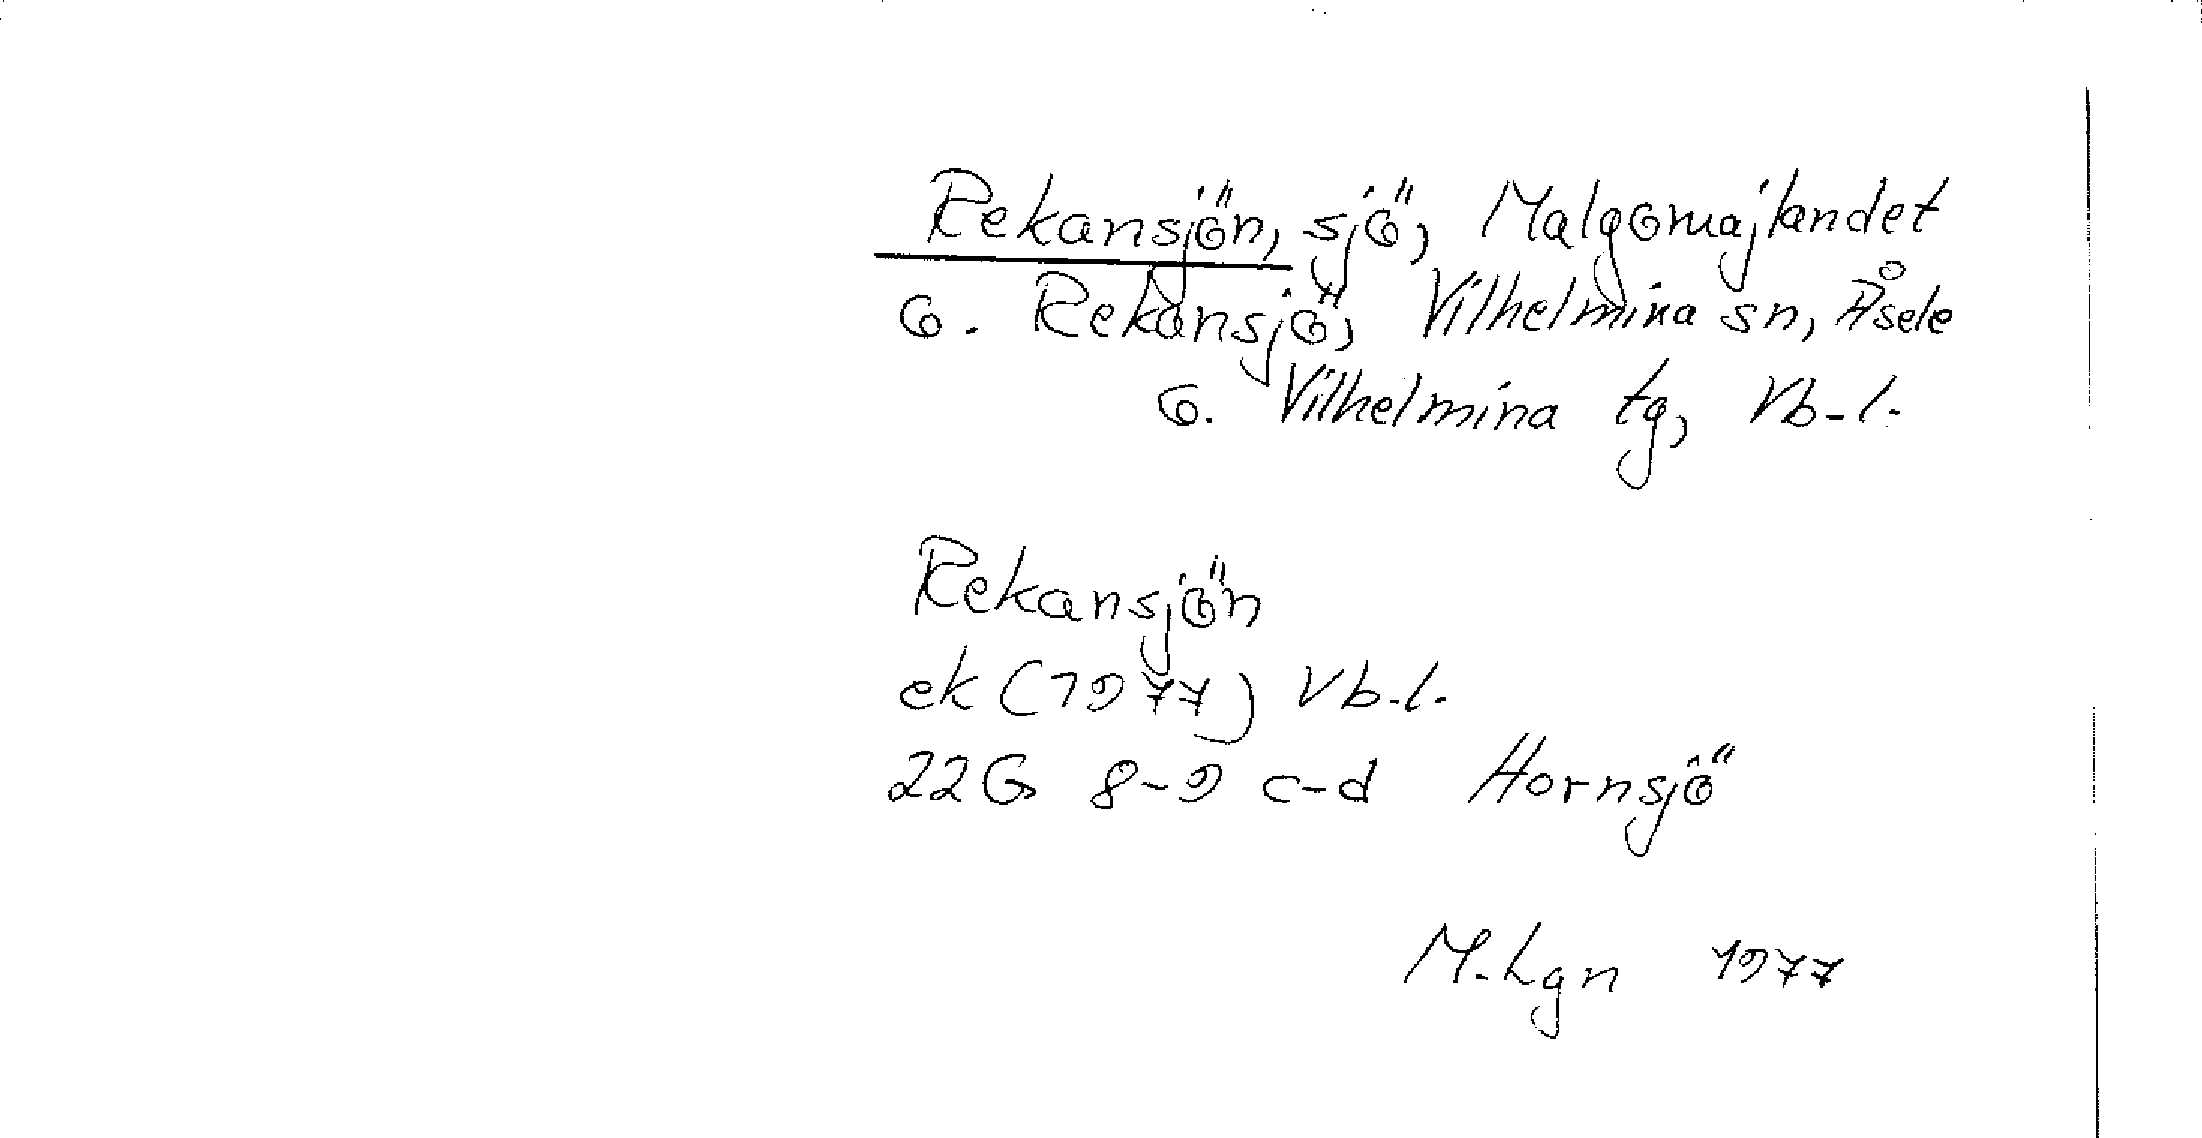 Rekansjön, sjö, Malgomajlandet
o. Rekansjö, Vilhelmina sn, Åsele
o. Vilhelmina tg, Vb-l.
Rekansjön
ek (1977) Vb.l.
22G 8-9 c-d Hornsjö
M.Lgn 1977